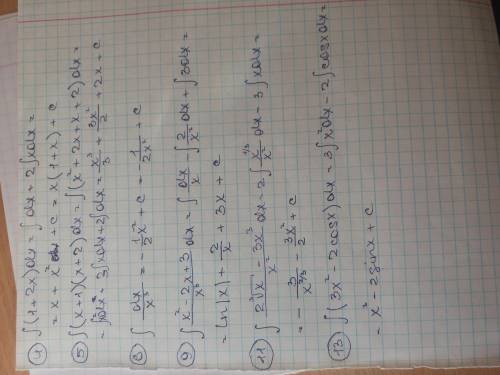 4) ∫(1+2x)dx = ∫dx + 2∫xdx =
= x + x² + c = x(1+x) + c
5) ∫(x+1)(x+2)dx = ∫(x²+2x+x+2)dx =
= ∫x²dx + 3∫xdx + 2∫dx = x³/3 + 3x²/2 + 2x + c
8) ∫dx/x³ = -1/2 x² + c = -1/2x² + c
9) ∫(x²-2x+3)/x³ dx = ∫dx/x - ∫2/x² dx + ∫3dx =
= ln|x| + 2/x + 3x + c
11) ∫(2∛x - 3x³)/x² dx = 2∫x^1/3/x² dx - 3∫xdx =
= -3/x^2/3 - 3x²/2 + c
13) ∫(3x² - 2cosx)dx = 3∫x²dx - 2∫cosxdx =
= x³ - 2sinx + c